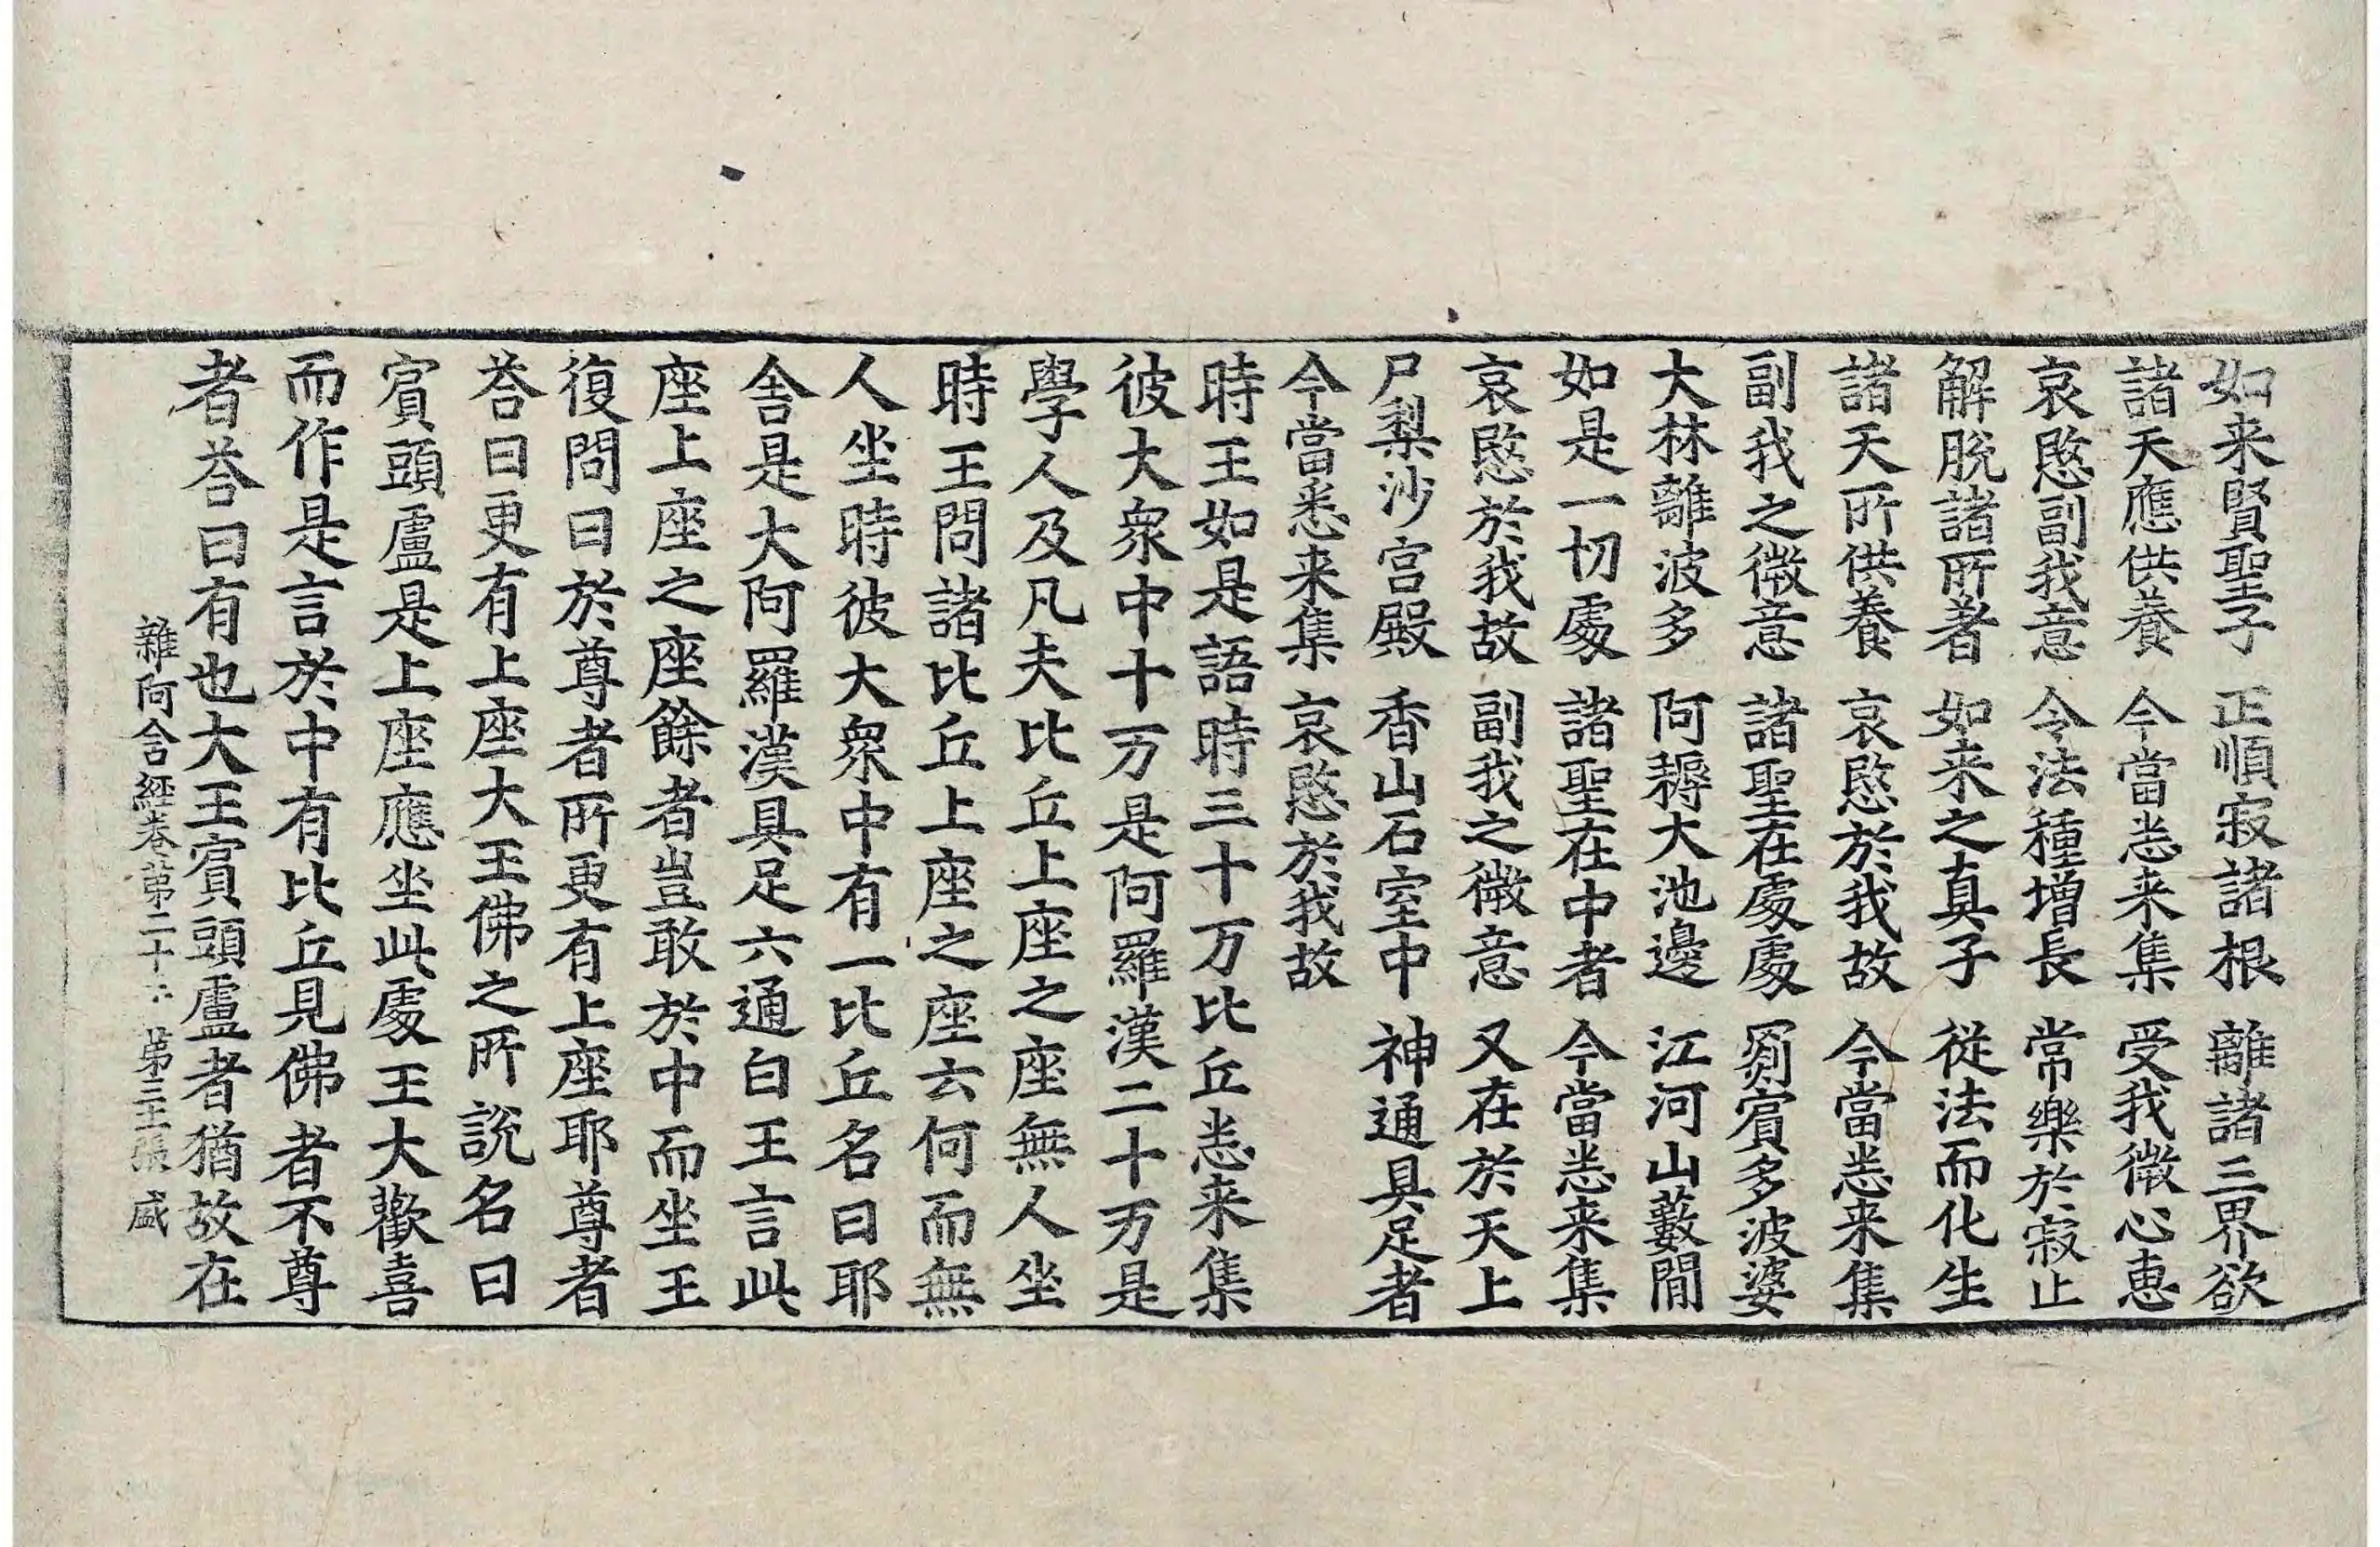 如来賢聖子 正順寂諸根 離諸三界欲
諸天應供養 今當悉来集 受我微心恵
哀愍副我意 令法種增長 常樂於寂止
解脫諸所著 如来之真子 從法而化生
諸天所供養 哀愍於我故 今當悉来集
副我之微意 諸聖在處處 罽賓多波婆
大林離波多 阿耨大池邊 江河山藪間
如是一切處 諸聖在中者 今當悉来集
哀愍於我故 副我之微意 又在於天上
尸梨沙宮殿 香山石室中 神通具足者
今當悉来集 哀愍於我故
時王如是語時三十万比丘悉来集
彼大衆中十万是阿羅漢二十万是
學人及凡夫比丘上座之座無人坐
時王問諸比丘上座之座云何而無
人坐時彼大衆中有一比丘名曰耶
舍是大阿羅漢具足六通白王言此
座上座之座餘者豈敢於中而坐王
復問曰於尊者所更有上座耶尊者
荅曰更有上座大王佛之所說名曰
賓頭盧是上座應坐此處王大歡喜
而作是言於中有比丘見佛者不尊
者荅曰有也大王賓頭盧者猶故在
雜阿含経卷第二十 第三 張 盛